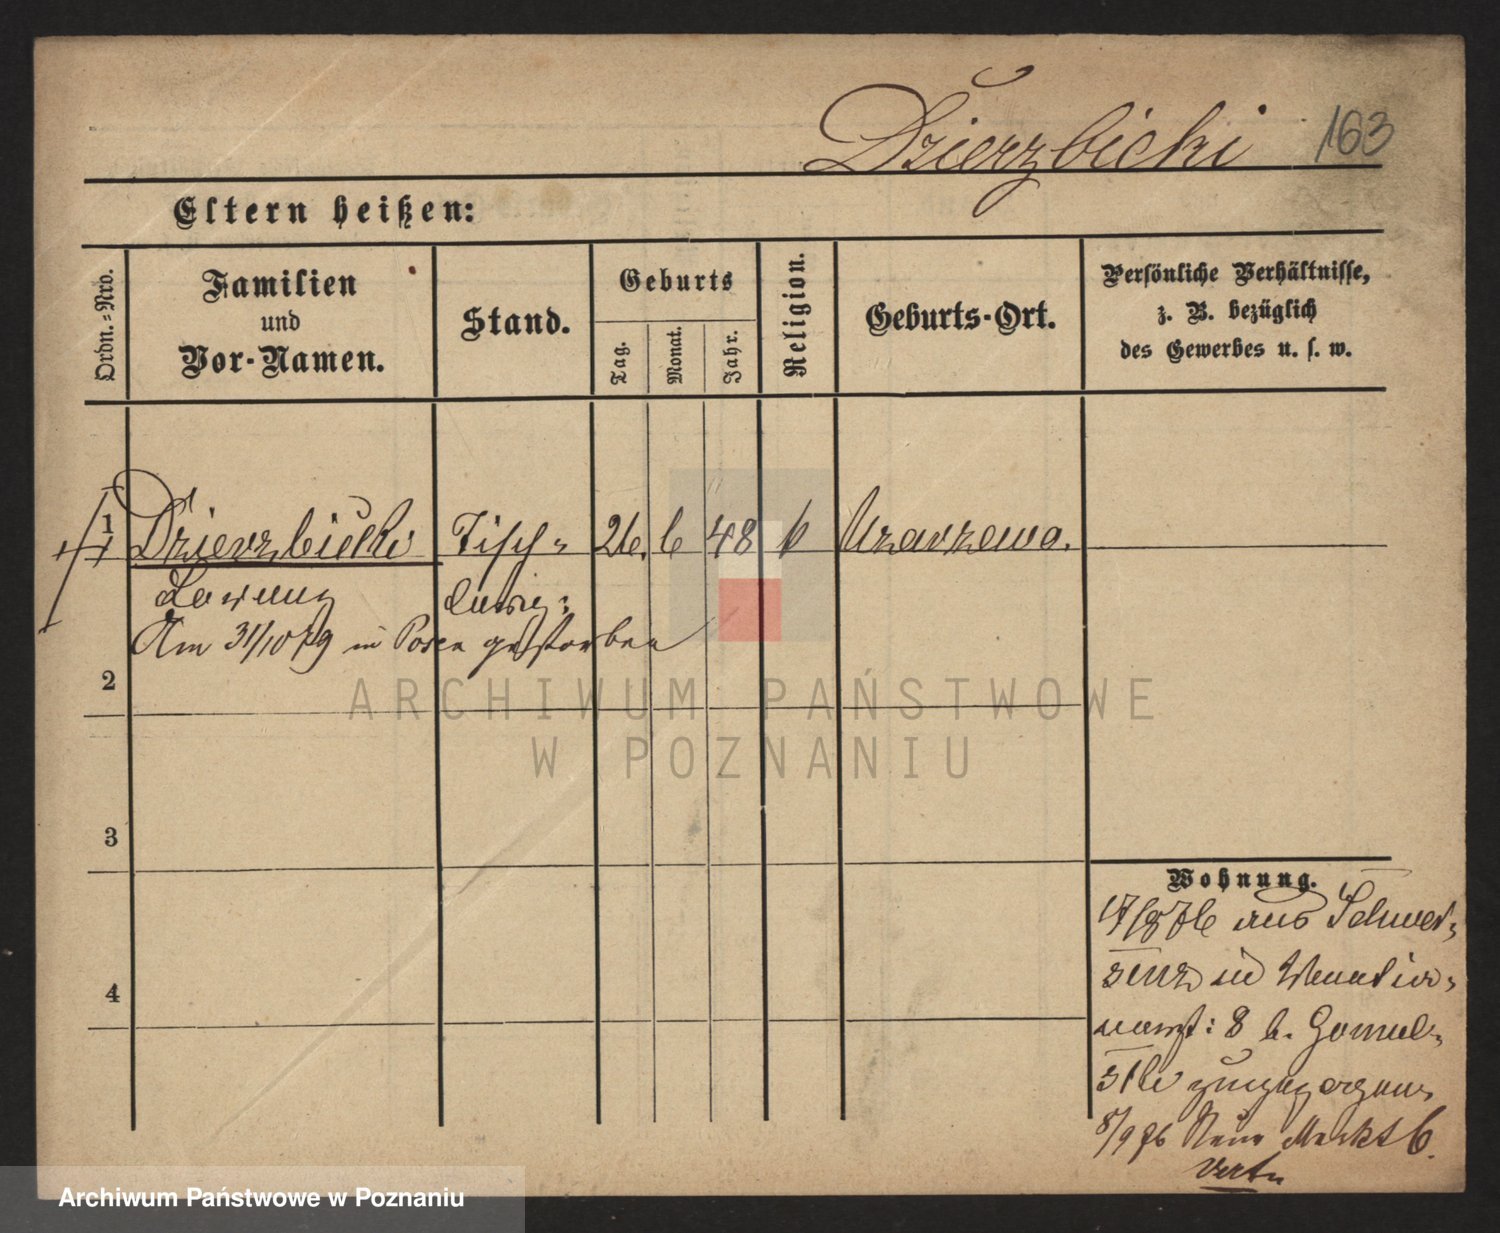 Dzierzbicki 163
Eltern heißen:
Ordn.=Nro.
Familien
und
Vor-Namen.
Stand.
Geburts
Tag.
Monat.
Jahr.
Religion.
Geburts-Ort.
Persönliche Verhältnisse,
z. B. bezüglich
des Gewerbes u. s. w.
1 Dzierzbicki Tisch= 26. 6 48 k
Am 31/10 79 in Posen gestorben
2
3
4
Wohnung.
17/8 76 aus Schwer=
senz in
8 b. Gomul=
ski zugezogen
8/9 76 Neue Markt 6.
Vertn
ARCHIWUM PAŃSTWOWE
W POZNANIU
Archiwum Państwowe w Poznaniu